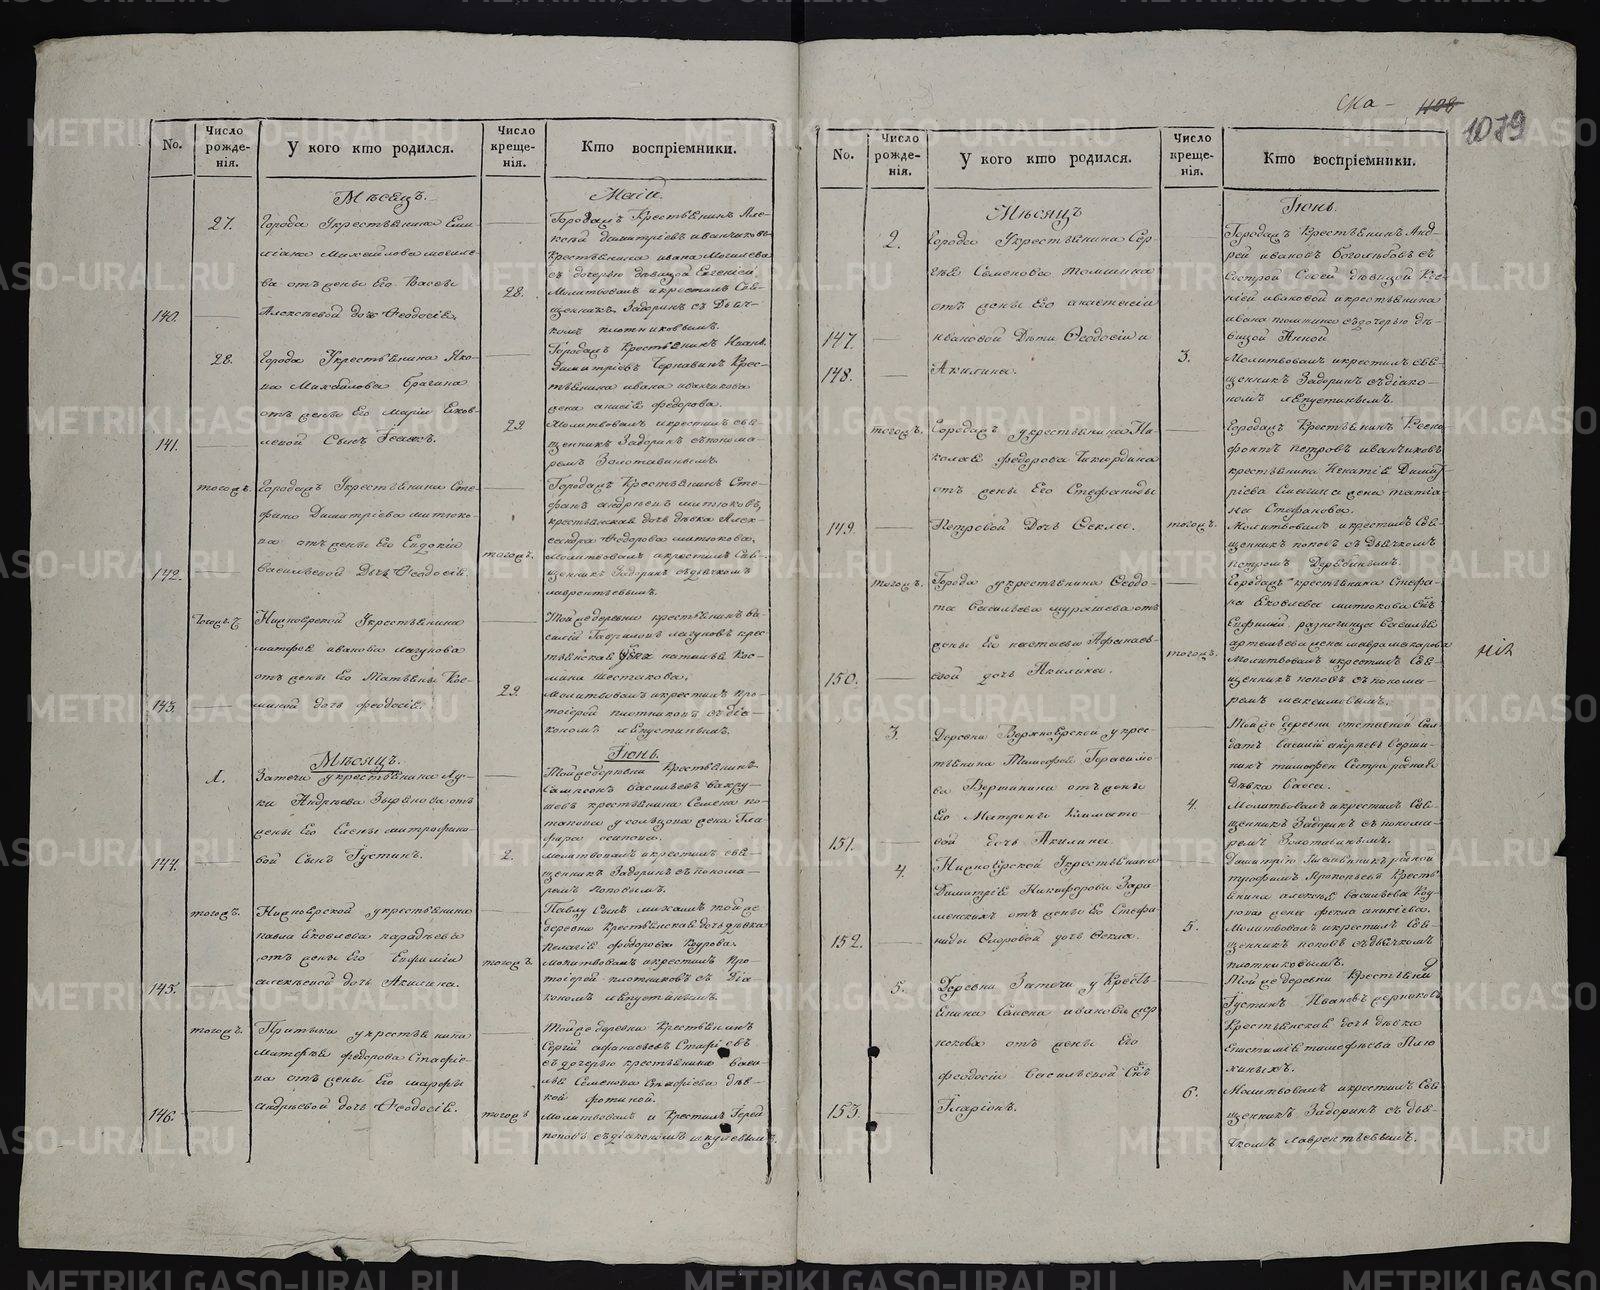 No.
Число рожде-нія.
У кого кто родился.
Число креще-нія.
Кто воспріемники.
Мѣсяцъ
Маій.
27.
Города Укрестьянина Еми-
ліана Михайлова
ва отъ жены Его Васы
140.
Алексѣевой дочь Ѳеодосія.
28.
Городецъ Крестьянинъ Але-
ксѣй Димитріевъ иванчиковъ
Крестьянина ивана Могилева
съ дочерью дѣвицой Евгеніей
Молитвовалъ и крестилъ Свя-
щенникъ Задоринъ съ Дьяч-
комъ плотниковымъ.
28.
Города Укрестьянина Яко-
ва Михайлова Брагина
отъ жены Его Маріи Яков-
141.
левой Сынъ Исаакъ.
29
Городецъ Крестьянинъ Иванъ
Димитріевъ Чернавинъ Крес-
тьянина ивана иванчикова
жена анисія федорова.
Молитвовалъ и крестилъ свя-
щенникъ Задоринъ съ понома-
ремъ Золотавинымъ.
тогожъ.
Городецъ Укрестьянина Сте-
фана Димитріева митюко-
ва отъ жены Его Евдокіи
142.
Васильевой Дочь Ѳеодосія.
тогожъ.
Городецъ Крестьянинъ Сте-
фанъ андреевъ митюковъ,
крестьянская дочь дѣвка Алек-
сандра Ѳедорова митюкова.
Молитвовалъ и крестилъ Свя-
щенникъ Задоринъ съ дьячкомъ
лаврентьевымъ.
Тогожъ
Нижноирской Укрестьянина
матфея иванова лагунова
отъ жены Его Татьяны Кос-
143.
миной дочь феодосія.
29.
Тойже деревни крестьянинъ Ва-
силій Гавриловъ лагуновъ крес-
тьянская наталья Кос-
мина шестакова,
Молитвовалъ и крестилъ про-
тоіерей плотниковъ съ діа-
кономъ лЯпустинымъ.
Мѣсяцъ.
Іюнь.
1.
Затечи укрестьянина Лу-
ки Андреева Зырянова отъ
жены Его Елены митрофано-
144.
вой Сынъ Іустинъ.
2.
Тойже деревни Крестьянинъ
Сампсонъ Васильевъ вахру-
шевъ крестьянина Семена по-
тапова усольцова жена Гла-
фира осипова.
Молитвовалъ и крестилъ свя-
щенникъ Задоринъ съ понома-
ремъ поповымъ.
тогожъ.
Нижноирской укрестьянина
павла Яковлева
отъ жены Его Евфиміи
145.
алексѣевой дочь Акилина.
тогожъ
Павлу Сынъ михаилъ тойже
деревни Крестьянская дочь дѣвка
Пелагія федорова Кузова.
молитвовалъ и крестилъ про-
тоіерей плотниковъ съ діа-
кономъ лЯпустинымъ.
тогожъ.
укрестьянина
матфея федорова Стафіе-
ва отъ жены Его марфы
146.
андреевой дочь Ѳеодосія.
тогожъ
Тойже деревни Крестьянинъ
Сергій афанасьевъ Стафіевъ
съ дочерью крестьянина васи-
лья Семенова Стафіева дѣв-
кой фотиной.
Молитвовалъ и крестилъ Іерей
поповъ съ діакономъ
1079
No.
Число рожде-нія.
У кого кто родился.
Число креще-нія.
Кто воспріемники.
Мѣсяцъ
Іюнь.
2.
Города Укрестьянина Сер-
гѣя Семенова томшина
отъ жены Его анастасіи
147.
ивановой Дѣти Ѳеодосія и
148.
Акилина.
3.
Городецъ Крестьянинъ Анд-
рей ивановъ Боголюбовъ съ
Сестрой Своей дѣвицой Ксе-
ніей ивановой и крестьянина
ивана томшина съ дочерью дѣ-
вицой Анной
Молитвовалъ и крестилъ свя-
щенникъ Задоринъ съ діако-
номъ лЯпустинымъ.
тогожъ.
Городецъ укрестьянина Ни-
колая федорова
отъ жены Его Стефаниды
149.
Петровой Дочь Ѳекла.
тогожъ.
Городецъ Крестьянинъ Ксено
фонтъ петровъ иванчиковъ
крестьянина Игнатія Димит
ріева жена татіа-
на Стефанова.
Молитвовалъ и крестилъ Свя-
щенникъ поповъ съ Дьячкомъ
петромъ Дерябинымъ.
тогожъ.
Города укрестьянина Ѳеодо-
та Савельева мурашева отъ
жены Его настасьи Афанась-
150.
евой дочь Акилина.
тогожъ.
Городецъ крестьянина Стефа-
на Яковлева митюкова Сынъ
Евфимій, разночинца Василья
артемьева жена мавра макарова
Молитвовалъ и крестилъ Свя-
щенникъ поповъ съ понома-
ремъ максимовымъ.
3.
Деревни Верхноирской укрес-
тьянина Тимофея Герасимо-
ва Вершинина отъ жены
Его Матроны
151.
вой дочь Акилина.
4.
Тойже деревни отставной Сал-
датъ василій андреевъ Верши-
нинъ тимофея Сестра родная
Дѣвка Васса.
Молитвовалъ и крестилъ Свя-
щенникъ Задоринъ съ понома-
ремъ Золотавинымъ.
4.
Нижноирской Укрестьянина
Димитрія Никифорова Зара
менскихъ отъ жены Его Стефа
152.
ниды дочь Ѳекла.
5.
Димитрію родной
трофимъ Прокопьевъ Кресть
янина алексѣя васильева Ку
жена фекла аникіева.
Молитвовалъ и крестилъ Свя-
щенникъ поповъ съ дьячкомъ
плотниковымъ.
5.
Деревни Затечи у Кресть
янина Семена иванова жер
нокова отъ жены Его
феодосіи Васильевой Сынъ
153.
Иларіонъ.
6.
Тойже деревни Крестьянинъ
Іустинъ Ивановъ жерноковъ
Крестьянская дочь дѣвка
тимофѣева Плю
хиныхъ.
Молитвовалъ и крестилъ Свя
щенникъ Задоринъ съ дья-
чкомъ лаврентьевымъ.